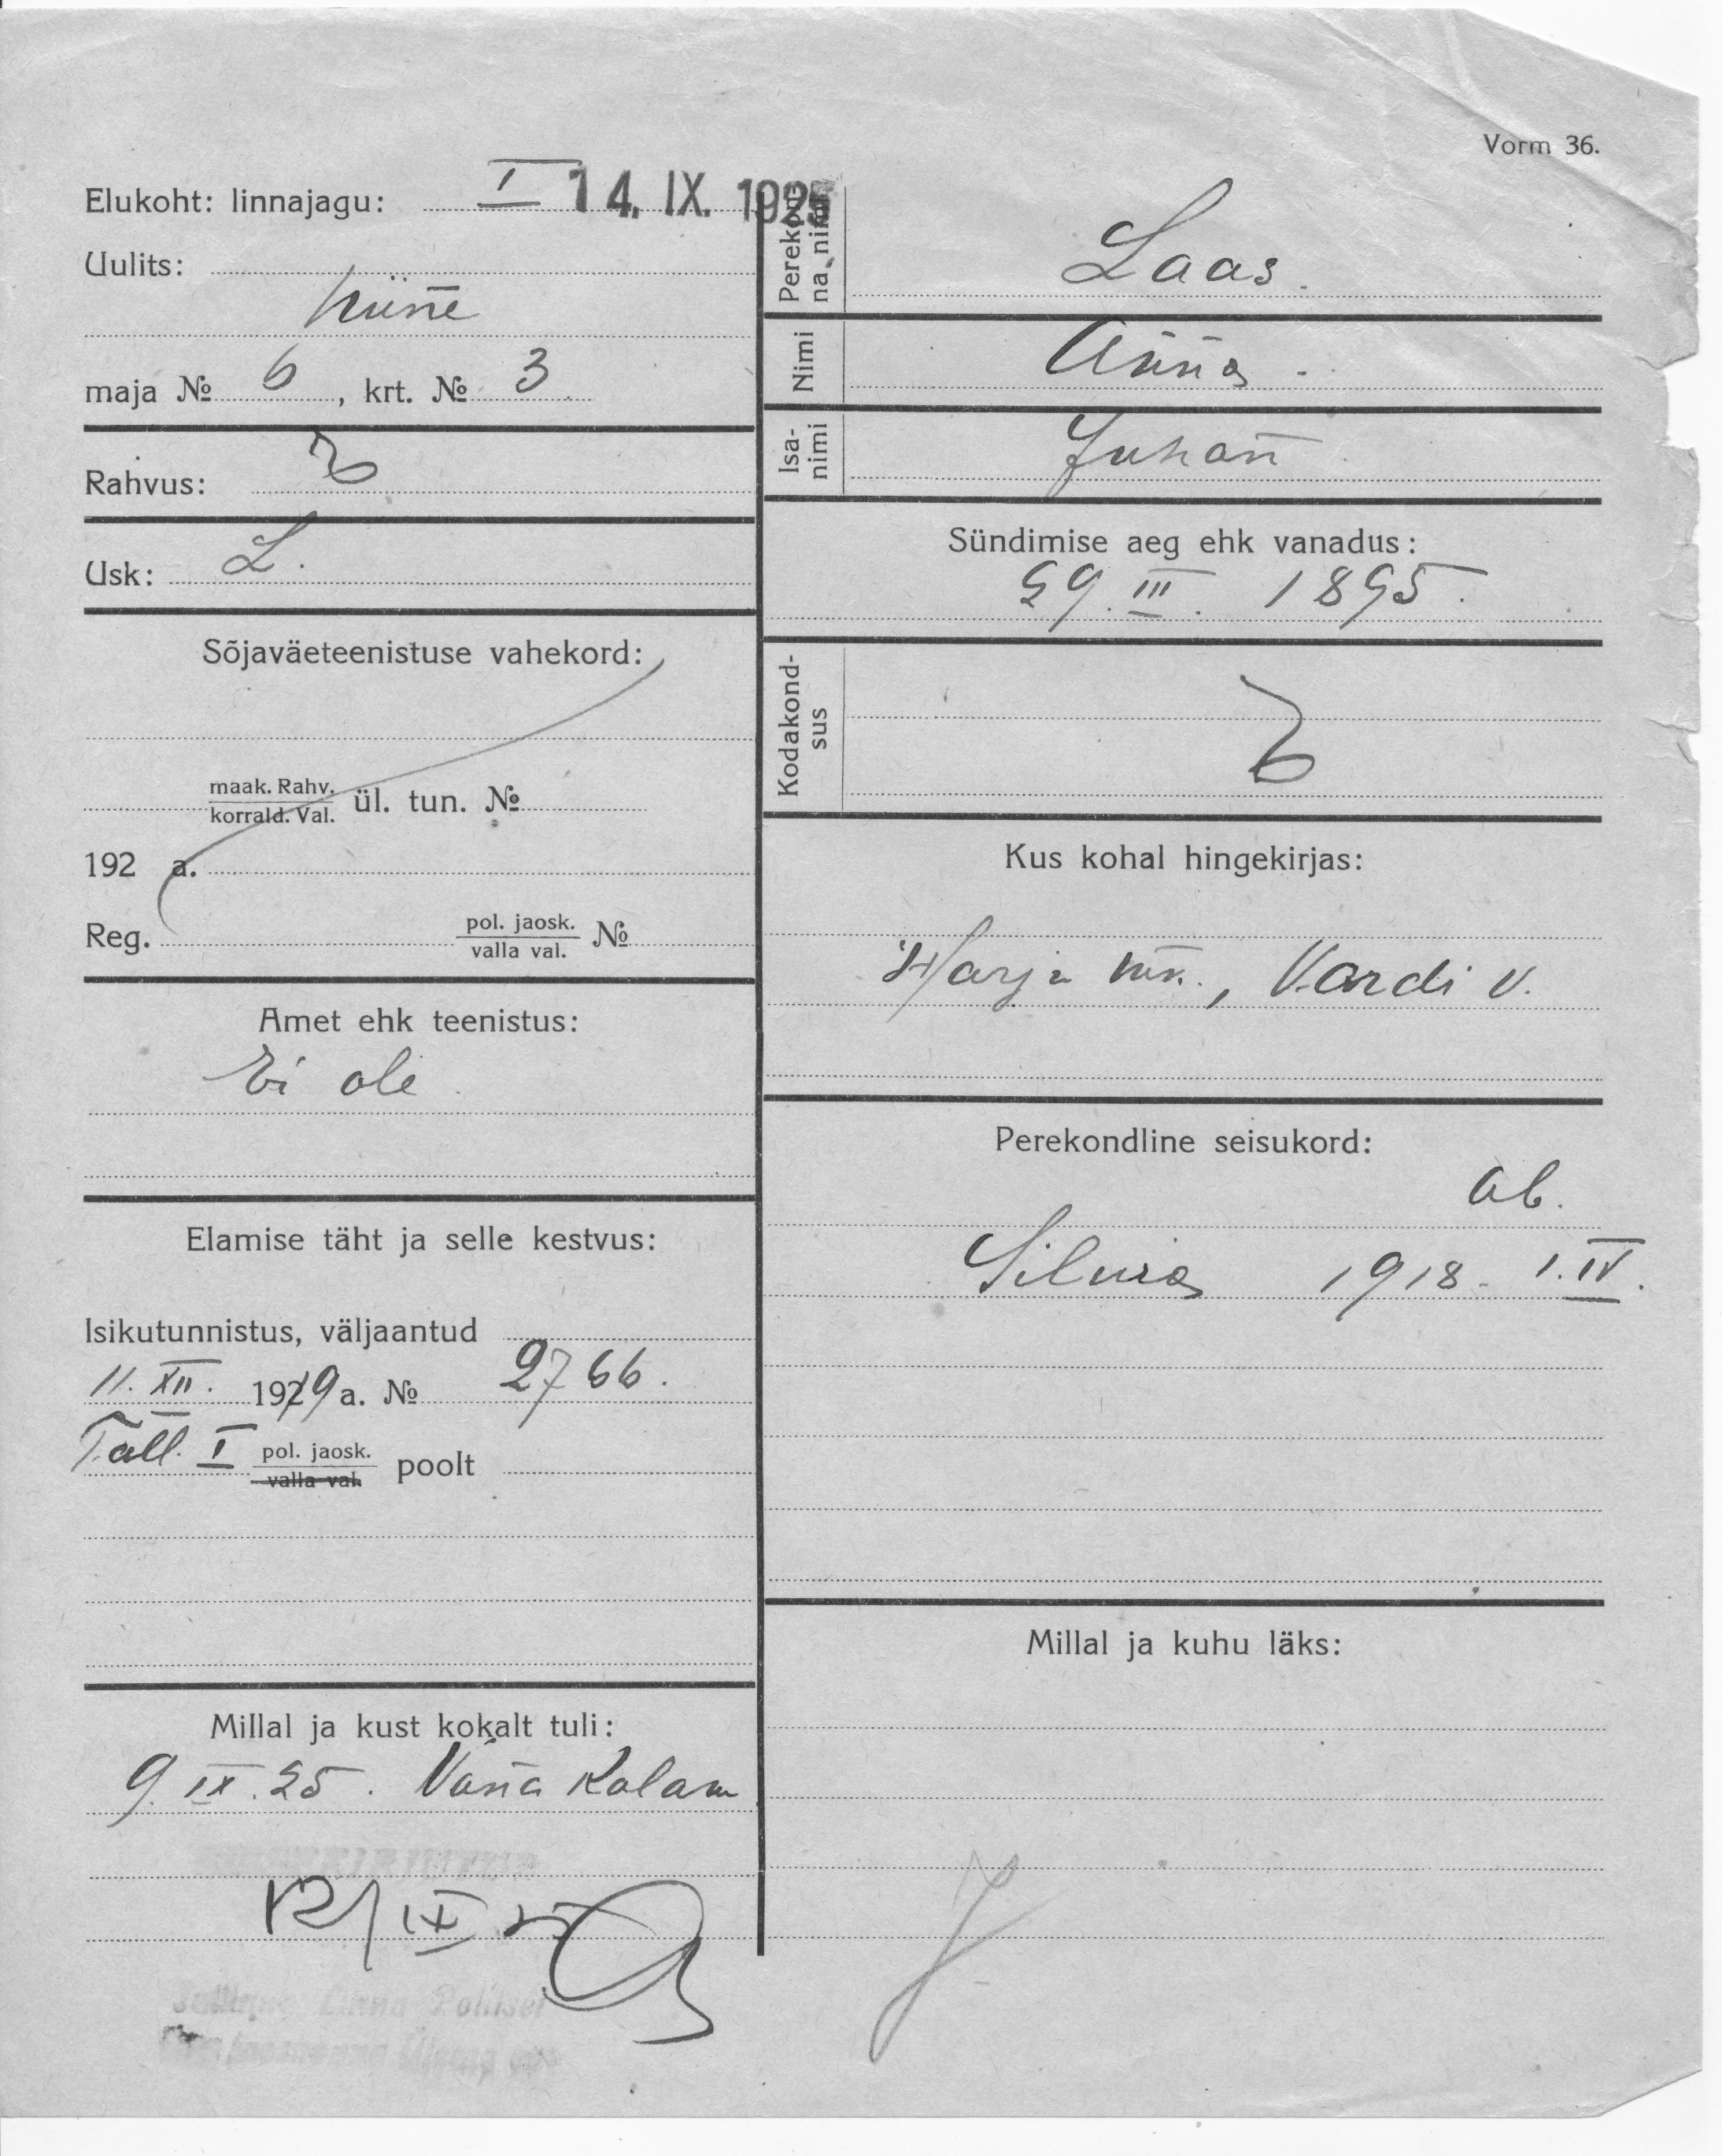 Vorm 36.
Elukoht: linnajagu: I 14. IX. 1925
Uulits:
maja № 6, krt. № 3
Rahvus: E
Usk: L.
Sõjaväeteenistuse vahekord:
maak. Rahv.
korrald. Val. ül. tun. №
192 a.
Reg. pol. jaosk.
valla val. №
Amet ehk teenistus:
Ei ole
Elamise täht ja selle kestvus:
Isikutunnistus, väljaantud
11. XII. 1919 a. № 2766.
Tall. I pol. jaosk.
valla val. poolt
Millal ja kust kokalt tuli:
9. IX. 25. Vana Kalam
12/IX 25
Tallinna Linna Politsei
Perekon-
na nimi
Laas.
Nimi
Anna.
Isa-
nimi
Juhan
Sündimise aeg ehk vanadus:
29. III. 1895.
Kodakond-
sus
E
Kus kohal hingekirjas:
Harju mk., Vardi v.
Perekondline seisukord:
ab.
Silvia 1918. 1. IV.
Millal ja kuhu läks: